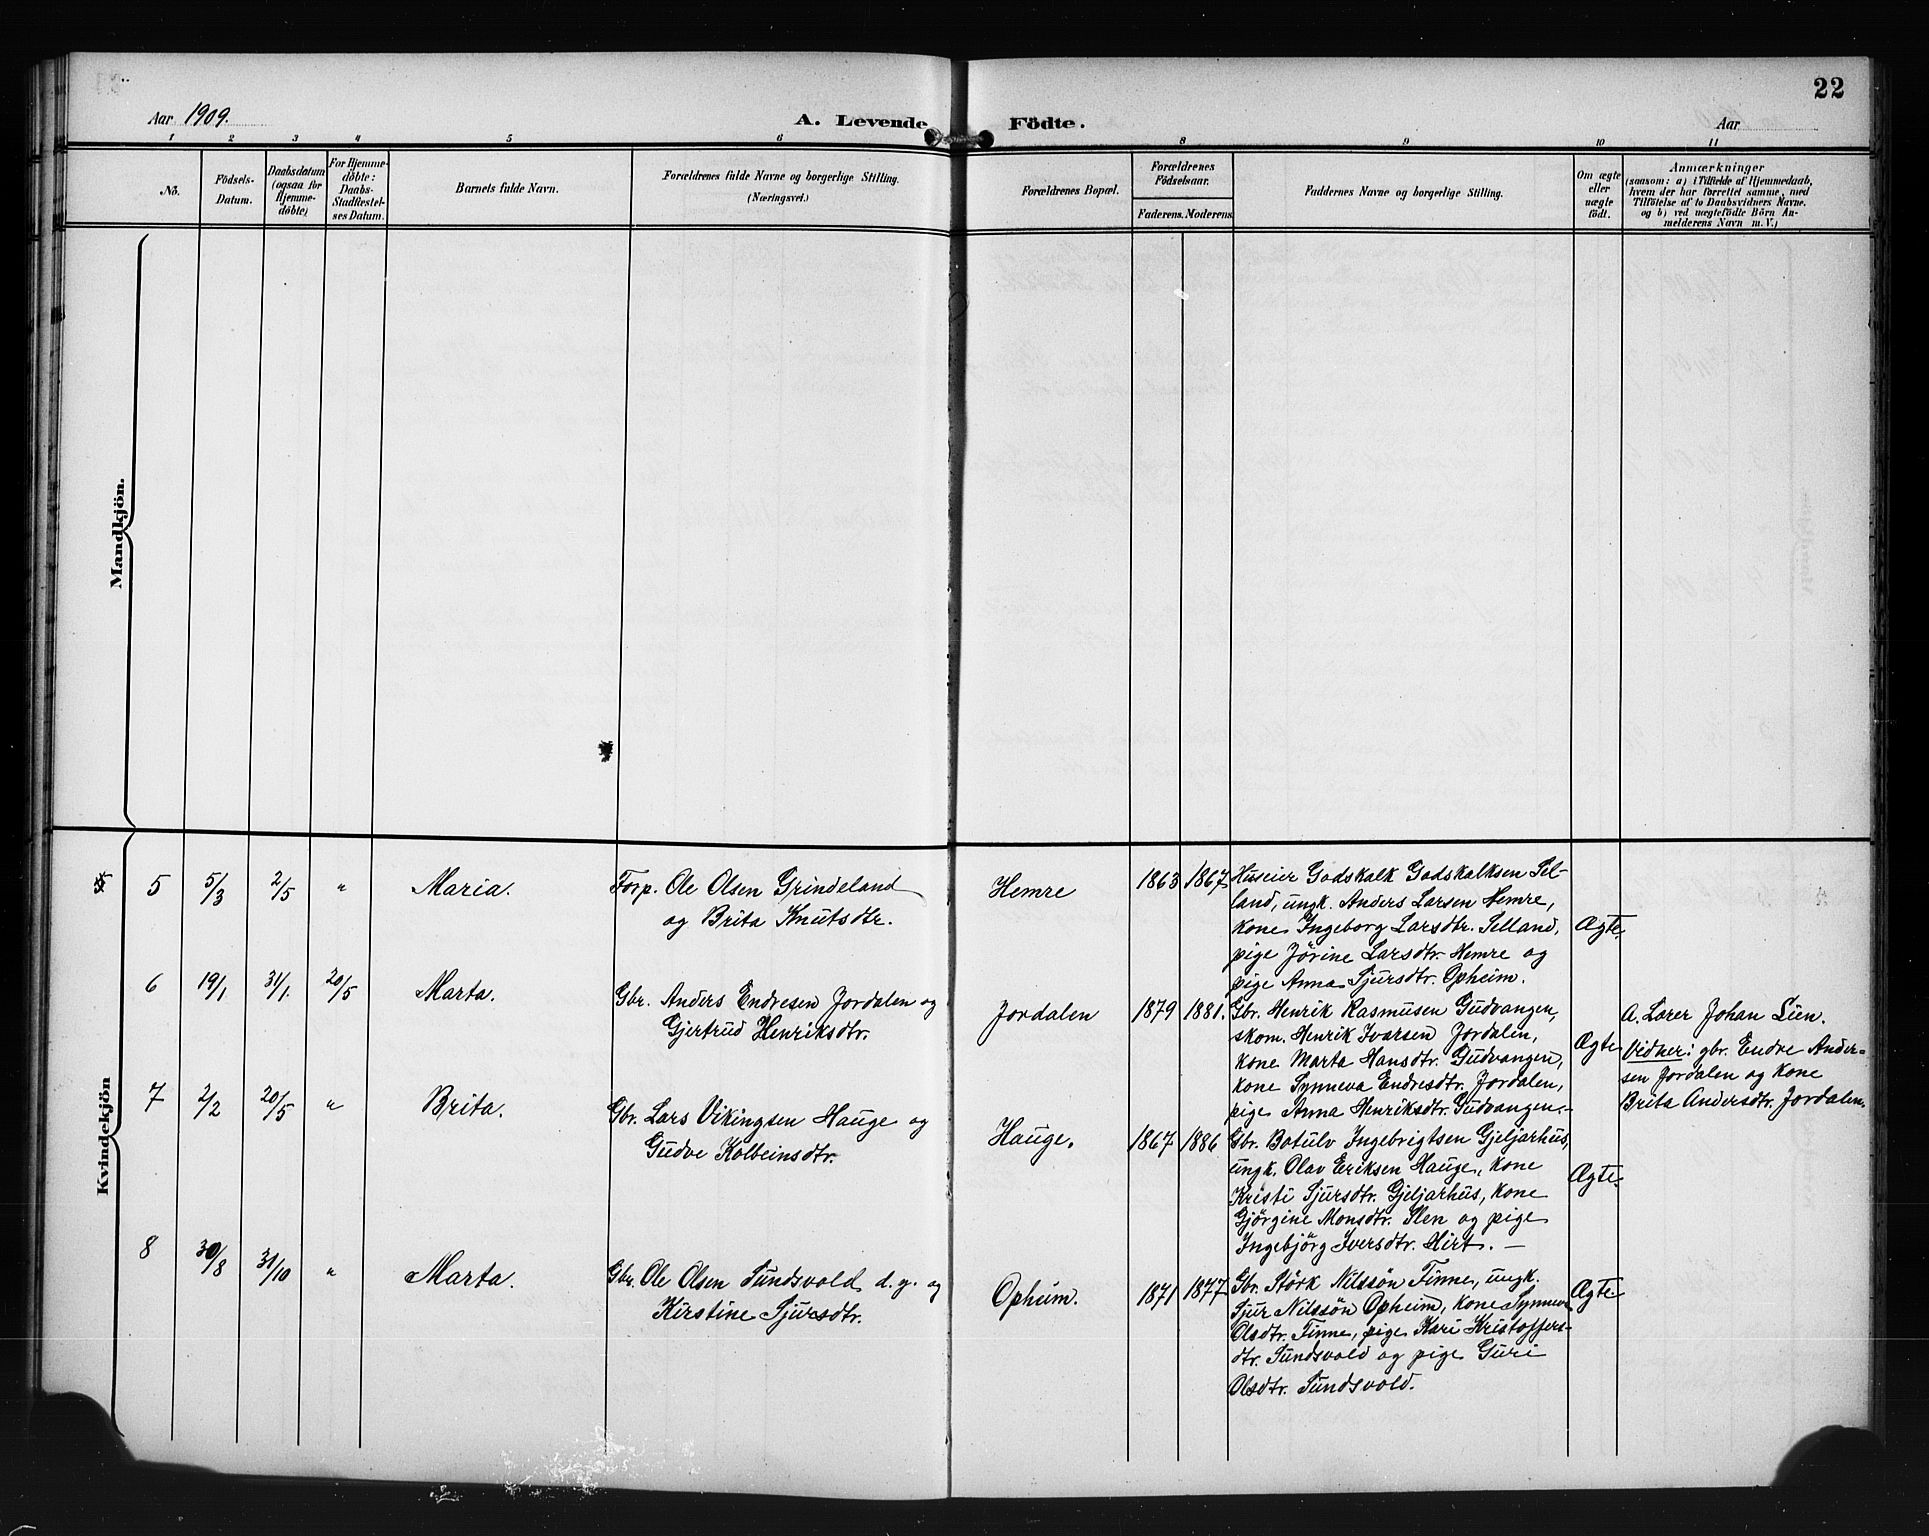 22
Aar 1909.
A. Levende Födte.
Aar
1 2 3 4 5 6 8 9 10 11
No.
Födsels-
Datum.
Daabsdatum
(ogsaa for
Hjemme-
döbte)
For Hjemme-
döbte:
Daabs-
Stadfæstel-
ses Datum.
Barnets fulde Navn.
Forældrenes fulde Navne og borgerlige Stilling.
(Næringsvei.)
Forældrenes Bopæl.
Forældrenes
Födselsaar.
Faderens. Moderens.
Faddernes Navne og borgerlige Stilling.
Om ægte
eller
uægte
födt.
Anmærkninger
(saasom: a) i Tilfælde af Hjemmedaab,
hvem der har forrettet samme, med
Tilföielse af to Daabsvidners Navne.
og b) ved uægtefödte Börn An-
melderens Navn m. V.)
Mandkjön.
Kvindekjön
5 5/3 2/5 " Maria.
Forp. Ole Olsen Grindeland
og Brita Knutsdtr.
Hemre
1863 1867
Huseier Godskalk Godskalksen Sel-
land, ungk. Anders Larsen Hemre,
kone Ingeborg Larsdtr. Selland,
pige Jörine Larsdtr. Hemre og
pige Anna Sjursdtr. Opheim.
Ægte.
6 19/1 31/1. 20/5 Marta.
Gbr. Anders Endresen Jordalen og
Gjertrud Henriksdtr.
Jordalen
1879 1881.
Gbr. Henrik Rasmusen Gudvangen,
skom. Henrik Ivarsen Jordalen,
kone Marta Hansdtr. Gudvangen,
kone Synneva Endresdtr. Jordalen,
pige Anna Henriksdtr. Gudvangen.-
Ægte
A. Lærer Johan Lien.
Vidner: gbr. Endre Ander-
sen Jordalen og kone
Brita Andersdtr. Jordalen.
7 2/2 20/5 " Brita.
Gbr. Lars Vikingsen Hauge og
Gudve Kolbeinsdtr.
Hauge.
1867 1886
Gbr. Botulv Ingebrigtsen Gjeljarhus,
ungk. Olav Eriksen Hauge, kone
Kristi Sjursdtr. Gjeljarhus, kone
Gjörgine Monsdtr. Slen og pige
Ingebjörg Iversdtr. Hirt. —
Ægte.
8 30/8 31/10 " Marta.
Gbr. Ole Olsen Sundsvold d. y. og
Kirstine Sjursdtr.
Opheim.
1871 1877
Gbr. Störk Nilssön Finne, ungk.
Sjur Nilssön Opheim, kone Synneva
Olsdtr. Finne, pige Kari Kristoffers-
dtr. Sundsvold og pige Guri
Olsdtr. Sundsvold.
Ægte